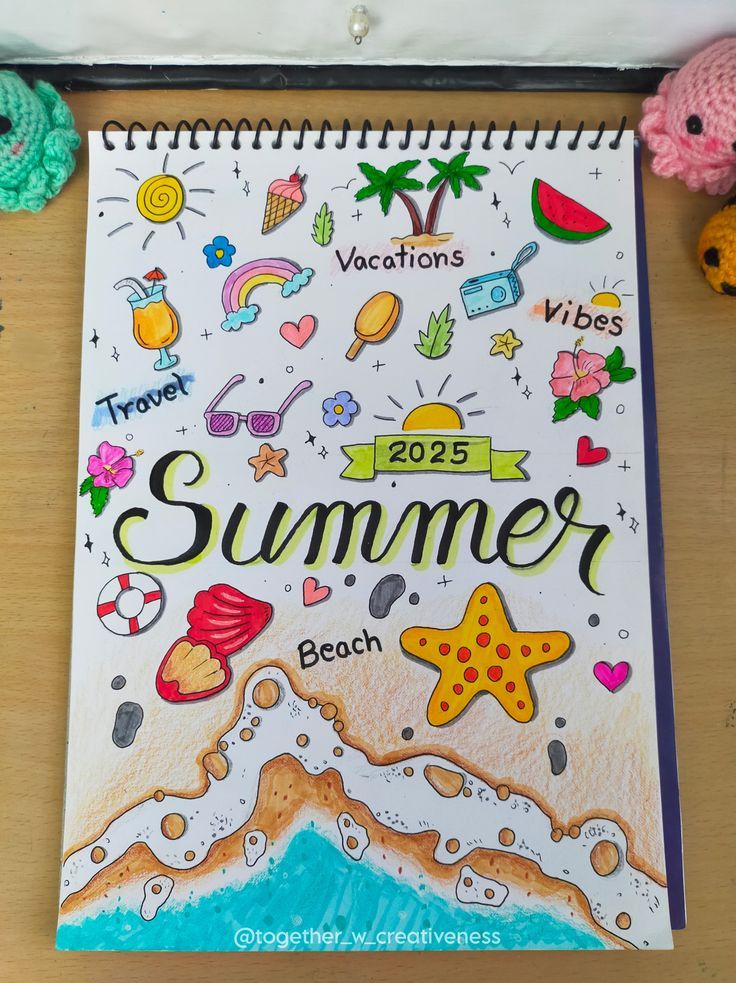 Vacations
Vibes
Travel
2025
Summer
Beach
@together_w_creativeness